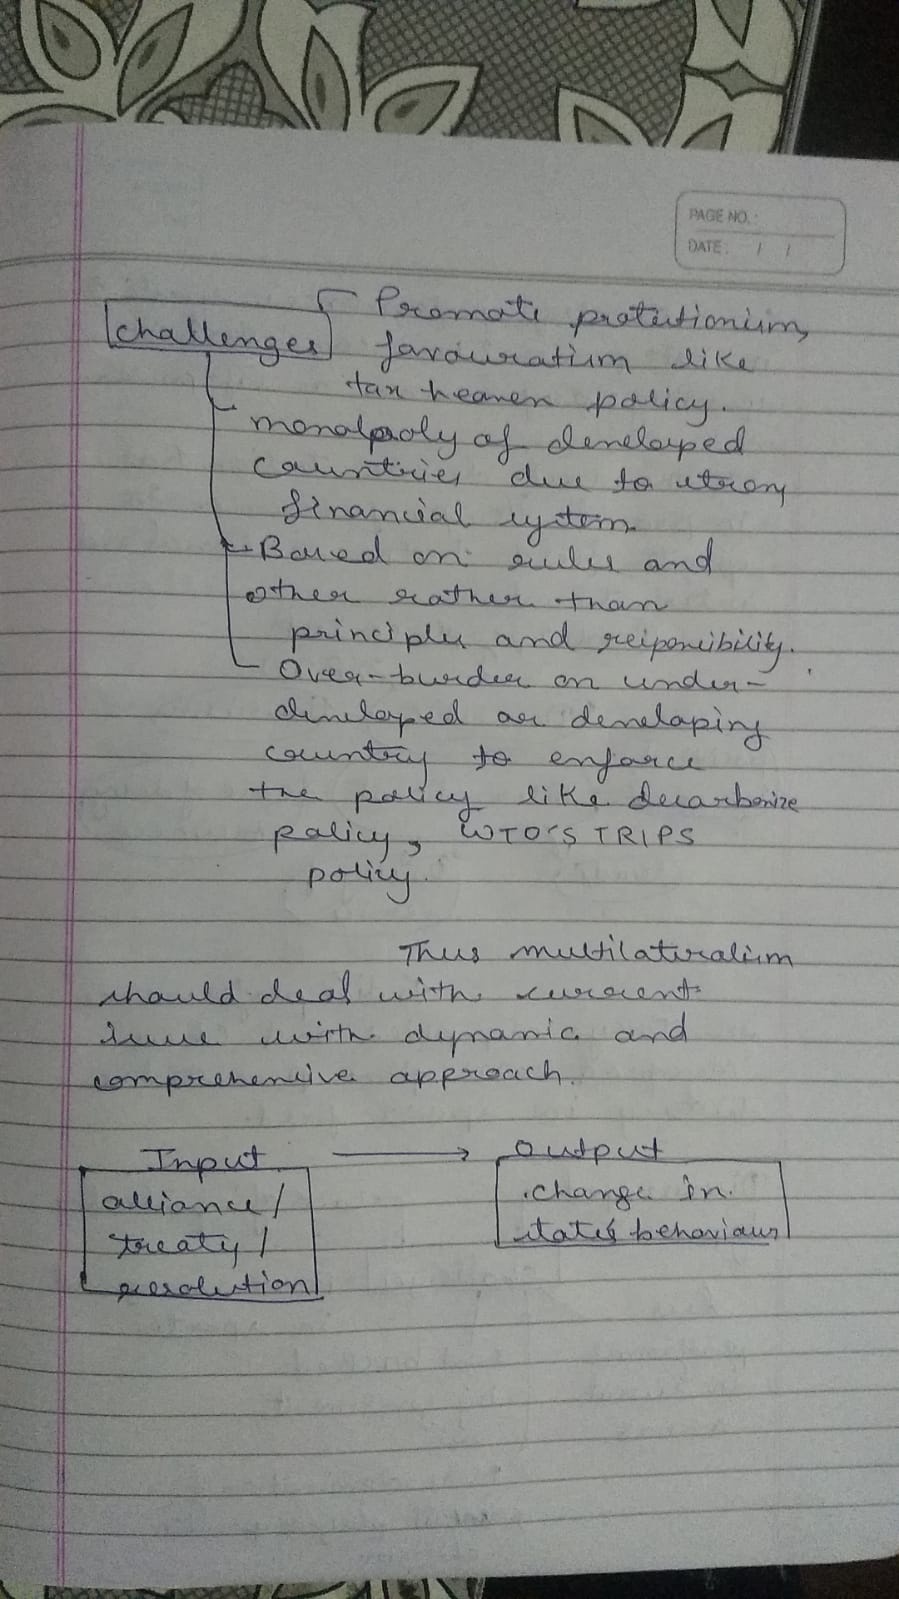 PAGE NO. :
DATE : / /
Promote protectionism,
challenges favouratism like
tax heaven policy.
monolpoly of developed
countries due to strong
financial system
Based on rules and
other rather than
principles and responsibility.
Over-burden on under-
developed or developing
country to enforce
the policy like decarbonize
policy, WTO'S TRIPS
policy.
Thus multilateralism
should deal with current
issue with dynamic and
comprehensive approach.
Input → Output
alliance / change in
treaty / state's behaviour
resolution